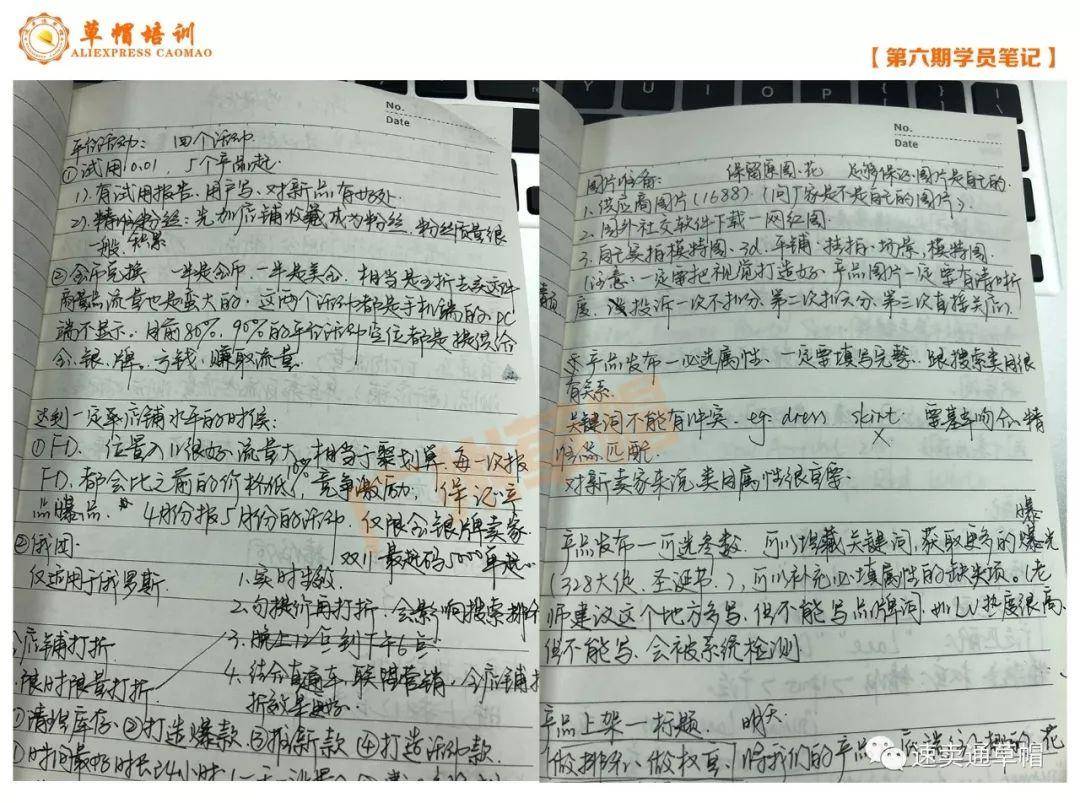 草帽培训
ALIEXPRESS CAOMAO
【第六期学员笔记】
No.
Date
平台活动： 四个活动
①试用 0.01， 5个产品起
1).有试用报告、用户写、对新品有好处
2).精准粉丝：先加店铺收藏成为粉丝，粉丝质量很
一般、积累
②金币兑换 一半是金币，一半是美金，相当是5折去卖这件
商品 流量也是蛮大的，这两个活动都是手机端的，PC
端不显示。目前80%，90%的平台活动定位都是提供给
金、银、牌。亏钱、赚取流量
达到一定店铺水平的时候：
①FD. 位置入口很好 流量大，相当于聚划算，每一次报
FD. 都会比之前的价格低10%，竞争激励， 保证
品爆品. 4月份报5月份的活动. 仅限金银牌卖家
②俄团. 双11 最起码5000单起
仅适用于俄罗斯 1. 实时生效
2. 勿提价再打折，会影响搜索排
店铺打折 3. 晚上12点到下午6点
限时限量打折 4. 结合直通车，联盟营销，全店铺
折效果更好
①清理库存 ②打造爆款 ③推新款 ④打造活动款
时间最好时长24小时
No.
Date
图片准备： 保留原图、花 足够保证图片是自己的
1. 供应商图片(1688) (问厂家是不是自己的图片)
2. 国外社交软件下载—网红图
3. 自己实拍模特图、3d、平铺、挂拍、场景，模特图
(注意：一定要把视觉打造好、产品图片一定要有清晰
度，投诉一次不扣分、第二次扣六分、第三次直接关店)
产品发布—必选属性、一定要填写完整、跟搜索类目很
有关系
关键词不能有冲突. eg. dress skirt 要基本吻合精
准匹配 X
对新卖家来说类目属性很重要
产品发布—可选参数、可以埋藏关键词，获取更多的曝光
(328大促、圣诞节.)，可以补充必填属性的缺失项。(老
师建议这个地方多写、但不能写品牌词，如LV热度很高
但不能写、会被系统检测
产品上架—标题. 明天
做排名、做权重
速卖通草帽